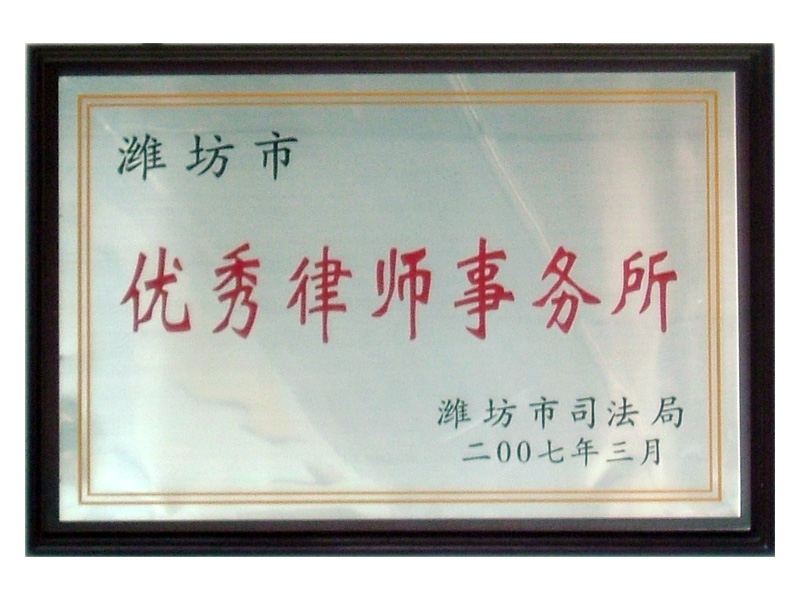 潍坊市
优秀律师事务所
潍坊市司法局
二00七年三月